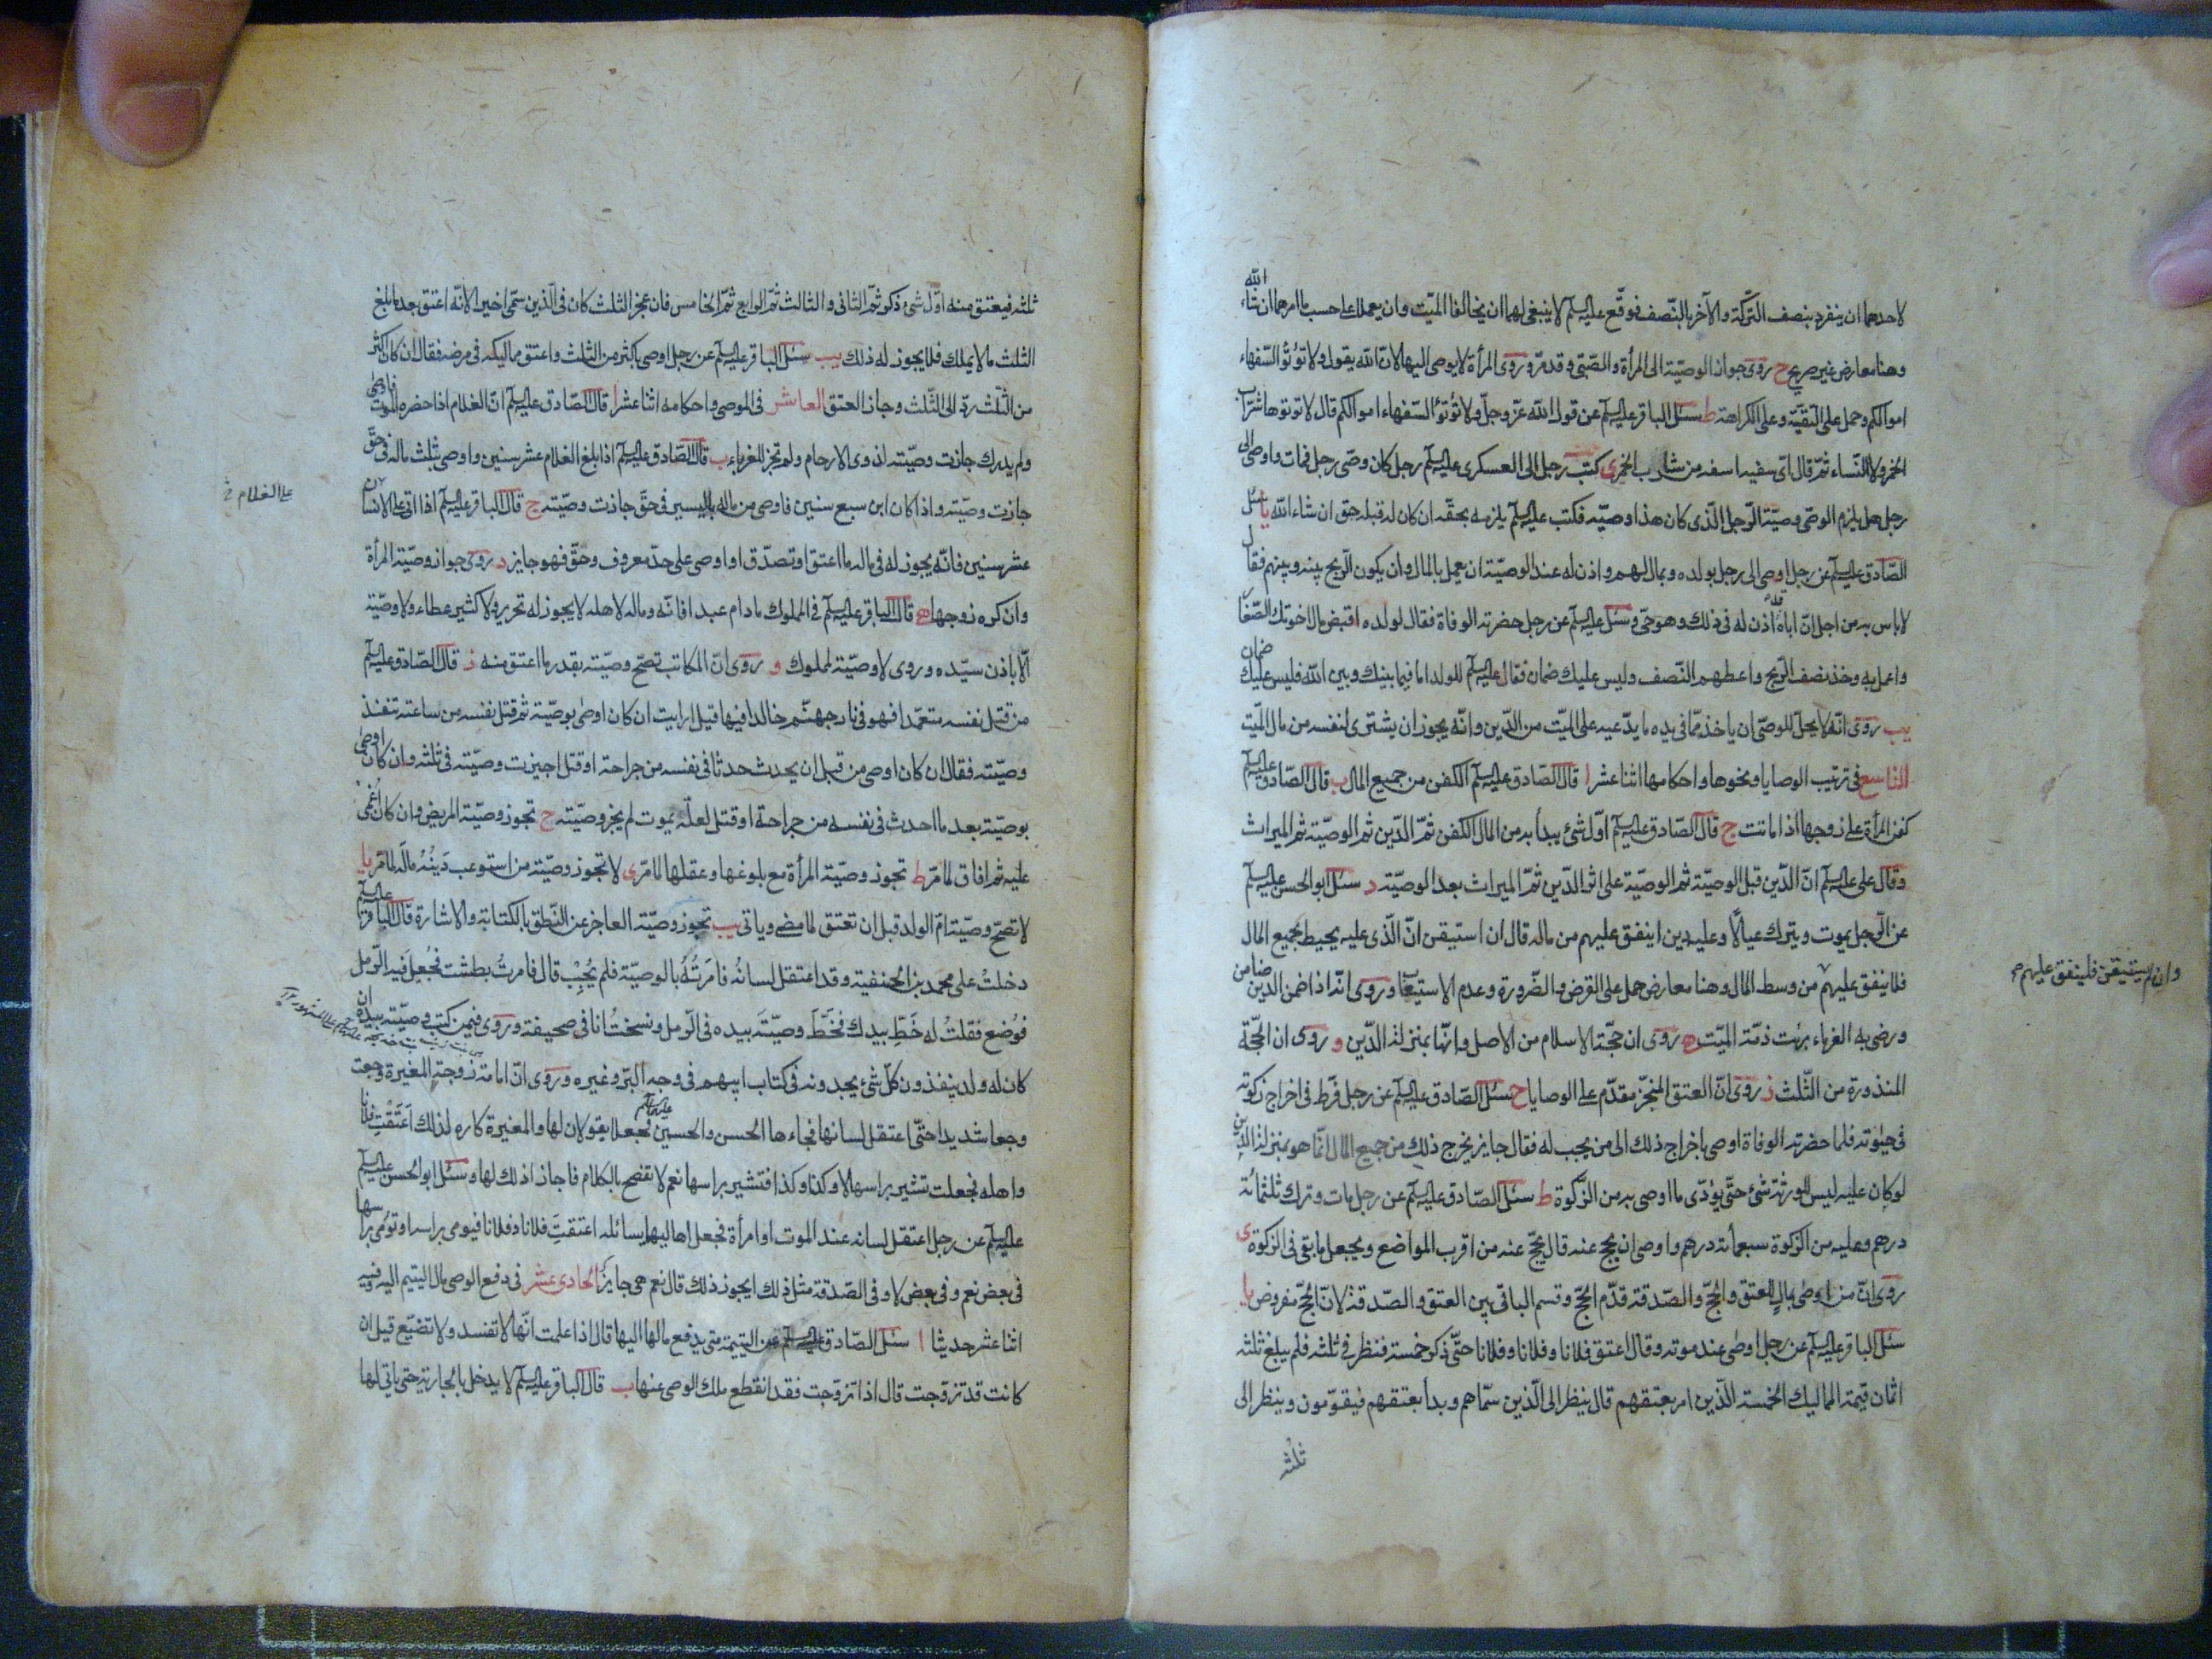 الله
لاحدهما ان ينفرد بنصف التركة والآخر بالنّصف فوقّع عليه السلم لا ينبغى لهما ان يخالفا الميّت وان يعملا على حسب ما امرهما ان شاء
وهنا معارض غير صريح ح روى جواز الوصيّة الى المرأة والصّبى وقد مرّ وروى المرأة لا يوصى اليها لانّ الله يقول ولا تؤتوا السّفهاء
اموالكم وحمل على التّقيّة وعلى الكراهة ط سئل الباقر عليه السلم عن قول الله عزّ وجلّ ولا تؤتوا السّفهاء اموالكم قال لا تؤتوها شرّاب
الخمر ولا النّساء ثمّ قال اىّ سفيه اسفه من شارب الخمر ى كتب رجل الى العسكرى عليه السلم رجل كان وصىّ رجل فمات واوصى الى
رجل هل يلزم الوصىّ وصيّة الرّجل الّذى كان هذا وصيّه فكتب عليه السلم يلزمه بحقّه ان كان له قبله حق ان شاء الله يا سئل
الصّادق عليه السلم عن رجل اوصى الى رجل بولده وبمال لهم واذن له عند الوصيّة ان يعمل بالمال وان يكون الرّبح بينه وبينهم فقال
لا باس به من اجل انّ اباه قد اذن له فى ذلك وهو حىّ وسئل عليه السلم عن رجل حضرته الوفاة فقال لولده اقبض مال اخوتك الصّغار
واعمل به وخذ نصف الرّبح واعطهم النّصف وليس عليك ضمان فقال عليه السلم للولد اما فيما بينك وبين الله فليس عليك ضمان
يب روى انّه لا يحلّ للوصىّ ان ياخذ ممّا فى يده ما يدّعيه على الميّت من الدّين وانّه يجوز ان يشترى لنفسه من مال الميّت
التاسع فى ترتيب الوصايا ونحوها واحكامها اثنا عشر ا قال الصّادق عليه السلم الكفن من جميع المال ب قال الصّادق عليه السلم
كفن المرأة على زوجها اذا ماتت ج قال الصّادق عليه السلم اوّل شئ يبدأ به من المال الكفن ثمّ الدّين ثم الوصيّة ثم الميراث
وقال على عليه السلم انّ الدّين قبل الوصيّة ثم الوصيّة على اثر الدّين ثمّ الميراث بعد الوصيّة د سئل ابو الحسن عليه السلم
عن الرّجل يموت ويترك عيالًا وعليه دين اينفق عليهم من ماله قال ان استيقن انّ الّذى عليه يحيط بجميع المال
فلا ينفق عليهم من وسط المال وهنا معارض حمل على القرض والضّرورة وعدم الاستيعاب وروى انّه اذا ضمن الدين ضامن
وان لم يستيقن فلينفق عليهم
ورضى به الغرماء برئت ذمّة الميّت ه روى ان حجّة الاسلام من الاصل وانّها بمنزلة الدّين و روى ان الحجّة
المنذورة من الثّلث ز روى انّ العتق المنجّز مقدّم على الوصايا ح سئل الصّادق عليه السلم عن رجل فرّط فى اخراج زكوته
فى حيوته فلما حضرته الوفاة اوصى باخراج ذلك الى من يجب له فقال جايز يخرج ذلك من جميع المال انّما هو بمنزلة الدّين
لو كان عليه ليس للورثة شئ حتّى يؤدّى ما اوصى به من الزّكوة ط سئل الصّادق عليه السلم عن رجل مات وترك ثلثمائة
درهم وعليه من الزكوة سبعمائة درهم واوصى ان يحج عنه قال يحجّ عنه من اقرب المواضع ويجعل ما بقى فى الزكوة ى
روى انّ من اوصى بمال للعتق والحجّ والصّدقة قدّم الحجّ وقسم الباقى بين العتق والصّدقة لانّ الحجّ مفروض يا
سئل الباقر عليه السلم عن رجل اوصى عند موته وقال اعتق فلانا وفلانا وفلانا حتّى ذكر خمسة فنظر فى ثلثه فلم يبلغ ثلثه
اثمان قيمة المماليك الخمسة الّذين امر بعتقهم قال ينظر الى الّذين سمّاهم وبدأ بعتقهم فيقوّمون وينظر الى
ثلثه
ثلثه فيعتق منه اوّل شئ ذكر ثمّ الثانى والثالث ثمّ الرابع ثمّ الخامس فان عجز الثلث كان فى الّذين سمّى اخيرا لانّه اعتق بعد ما بلغ
الثلث ما لا يملك فلا يجوز له ذلك يب سئل الباقر عليه السلم عن رجل اوصى باكثر من الثلث واعتق مماليكه فى مرضه فقال ان كان اكثر
من الثّلث ردّ الى الثّلث وجاز العتق العاشر فى الموصى واحكامه اثنا عشر ا قال الصّادق عليه السلم انّ الغلام اذا حضره الموت فاوصى
ولم يدرك جازت وصيّته لذوى الارحام ولم تجز للغرباء ب قال الصّادق عليه السلم اذا بلغ الغلام عشر سنين واوصى بثلث ماله فى حقّ
جازت وصيّته واذا كان ابن سبع سنين فاوصى من ماله باليسير فى حقّ جازت وصيّته ج قال الباقر عليه السلم اذا اتى على الانسان
على الغلام خ
عشر سنين فانّه يجوز له فى ماله ما اعتق او تصدّق او اوصى على حدّ معروف وحقّ فهو جايز د روى جواز وصيّة المرأة
وان كره زوجها ه قال الباقر عليه السلم فى المملوك ما دام عبدا فانّه وماله لاهله لا يجوز له تحرير ولا كثير عطاء ولا وصيّة
الّا باذن سيّده وروى لا وصيّة لمملوك و روى انّ المكاتب تصحّ وصيّته بقدر ما اعتق منه ز قال الصّادق عليه السلم
من قتل نفسه متعمّدا فهو فى نار جهنّم خالدا فيها قيل ارايت ان كان اوصى بوصيّة ثم قتل نفسه من ساعته تنفذ
وصيّته فقال ان كان اوصى من قبل ان يحدث حدثا فى نفسه من جراحة او قتل اجيزت وصيّته فى ثلثه وان كان اوصى
بوصيّة بعد ما احدث فى نفسه من جراحة او قتل لعلّه يموت لم يجز وصيّته ح تجوز وصيّة المريض وان كان اُغمى
عليه ثم افاق لما مرّ ط تجوز وصيّة المرأة مع بلوغها وعقلها لما مرّ ى لا تجوز وصيّة من استوعب دَينُهُ مالَه لما مرّ يا
لا تصحّ وصيّة امّ الولد قبل ان تعتق لما مضى وياتى يب تجوز وصيّة العاجز عن النّطق بالكتابة والاشارة قال الباقر عليه السلم
دخلتُ على محمد بن الحنفية وقد اعتقل لسانُه فامَرتُهُ بالوصيّة فلم يُجِبْ قال فامرتُ بطشت فجُعل فيه الرّمل
فوُضع فقلتُ له خُطّ بيدك فخَطَّ وصيّتَه بيده فى الرّمل ونسختُ انا فى صحيفة وروى فيمن كتب وصيّته بيده ان
كان له ولد ينفذون كلّ شئ يجدونه فى كتاب ابيهم فى وجه البرّ وغيره وروى انّ امامة زوجة المغيرة وجعت
وجعا شديدا حتّى اعتقل لسانها فجاءها الحسن والحسين عليهما السلم فجعلا يقولان لها والمغيرة كاره لذلك اَعتَقْتِ فلانا
واهله فجعلت تشير براسها لا وكذا وكذا فتشير براسها نعم لا تفصح بالكلام فاجازا ذلك لها وسئل ابو الحسن عليه السلم
عليه السلم عن رجل اعتقل لسانه عند الموت او امرأة فجعل اهاليهما يسائله اعتقتَ فلانا وفلانا فيومى براسه او تومى براسها
فى بعض نعم وفى بعض لا وفى الصّدقة مثل ذلك ايجوز ذلك قال نعم هى جايز الحادى عشر فى دفع الوصى مال اليتيم اليه فيه
اثنا عشر حديثا ا سئل الصّادق عليه السلم عن اليتيمة متى يدفع مالها اليها قال اذا علمت انّها لا تفسد ولا تضيّع قيل ان
كانت قد تزوّجت قال اذا تزوّجت فقد انقطع ملك الوصى عنها ب قال الباقر عليه السلم لا يدخل بالجارية حتى ياتى لها